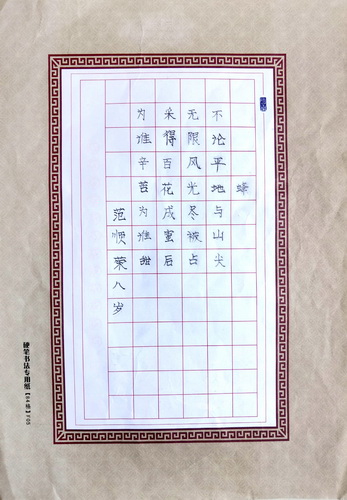 蜂
不论平地与山尖
无限风光尽被占
采得百花成蜜后
为谁辛苦为谁甜
范顺荣八岁
硬笔书法专用纸